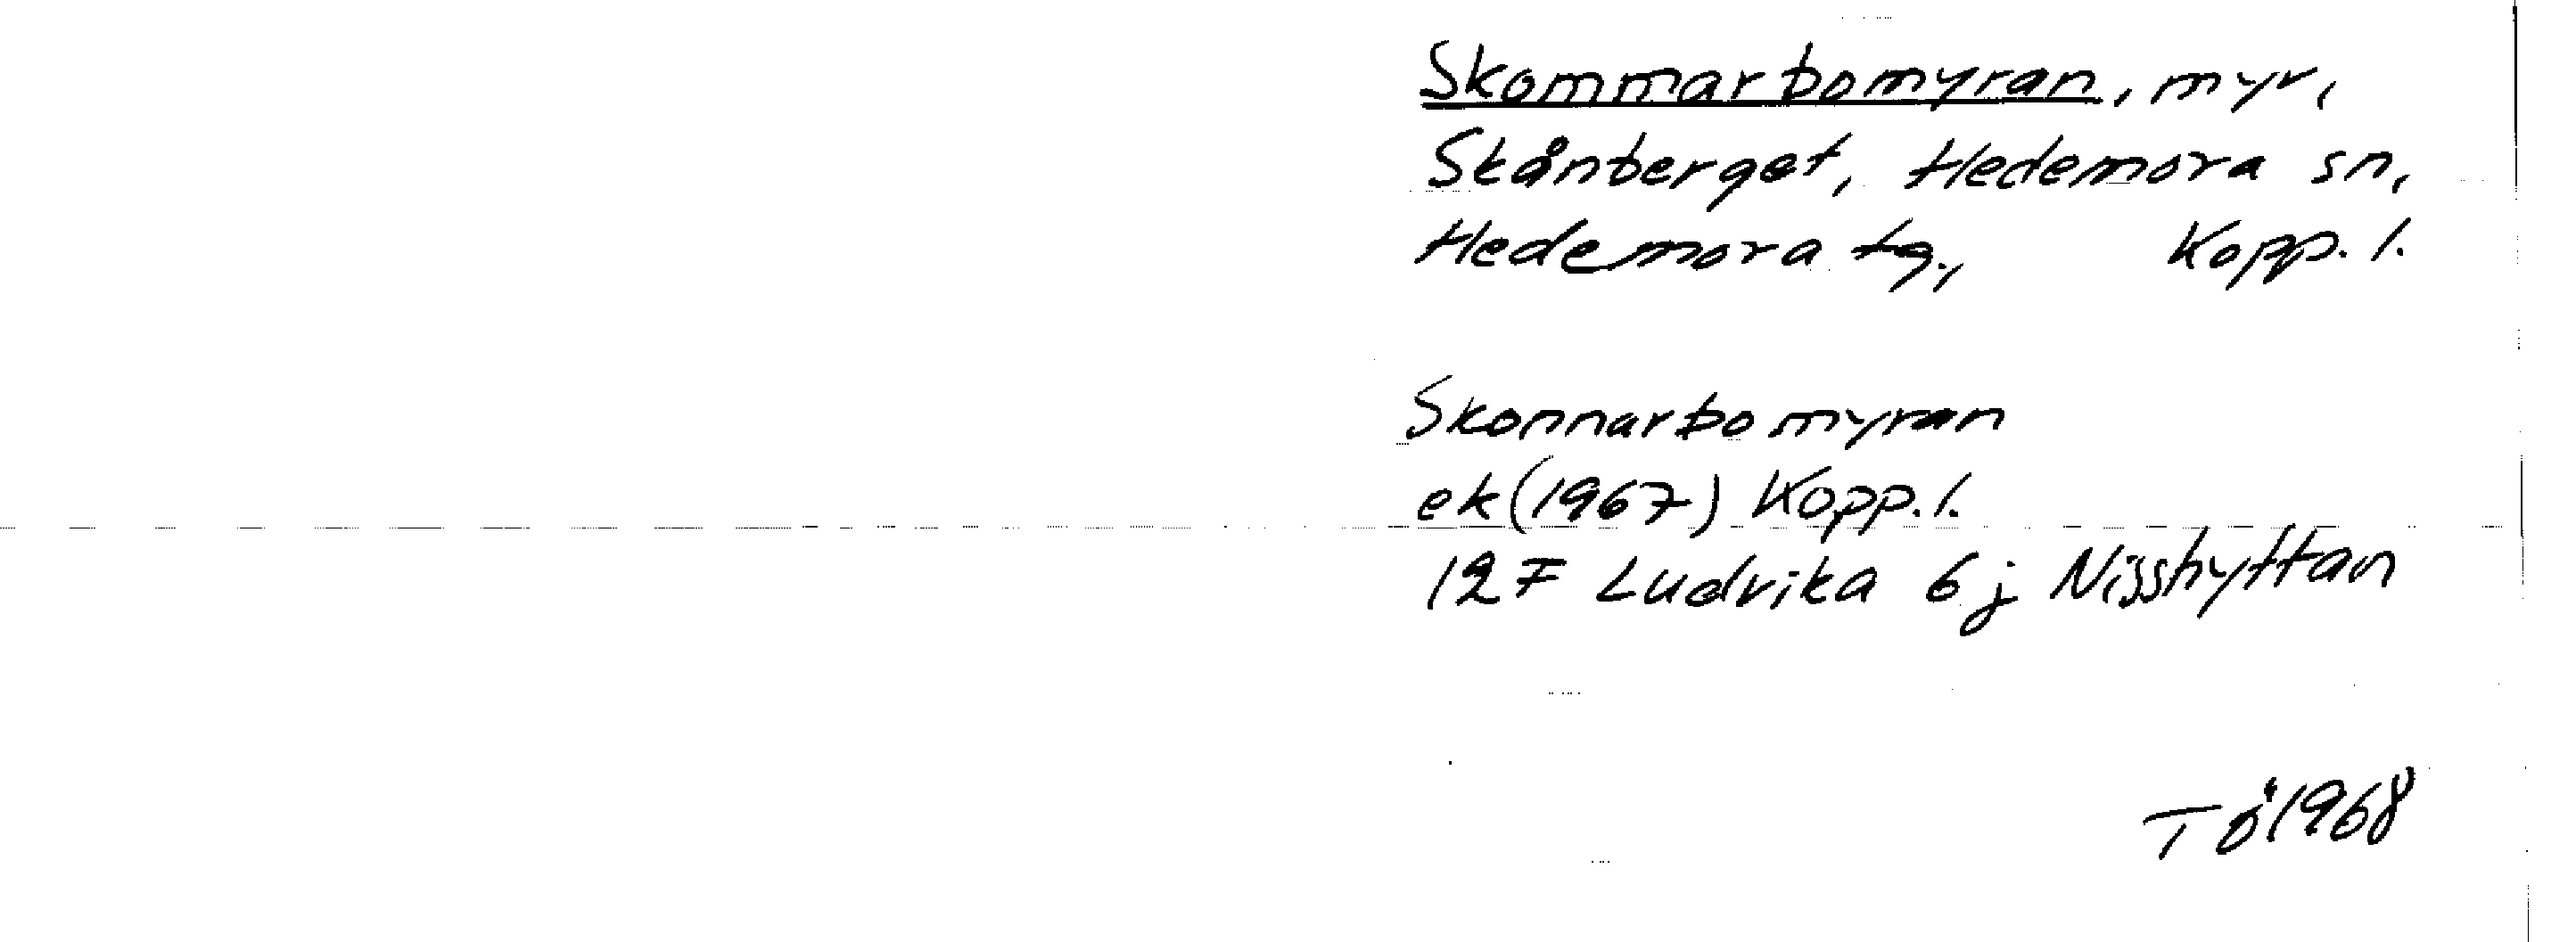 Skommarbomyran, myr,
Skånberget, Hedemora sn,
Hedemora tg., Kopp. l.
Skonnarbomyran
ek (1967) Kopp. l.
12 F Ludvika 6 j Nisshyttan
TÖ 1968